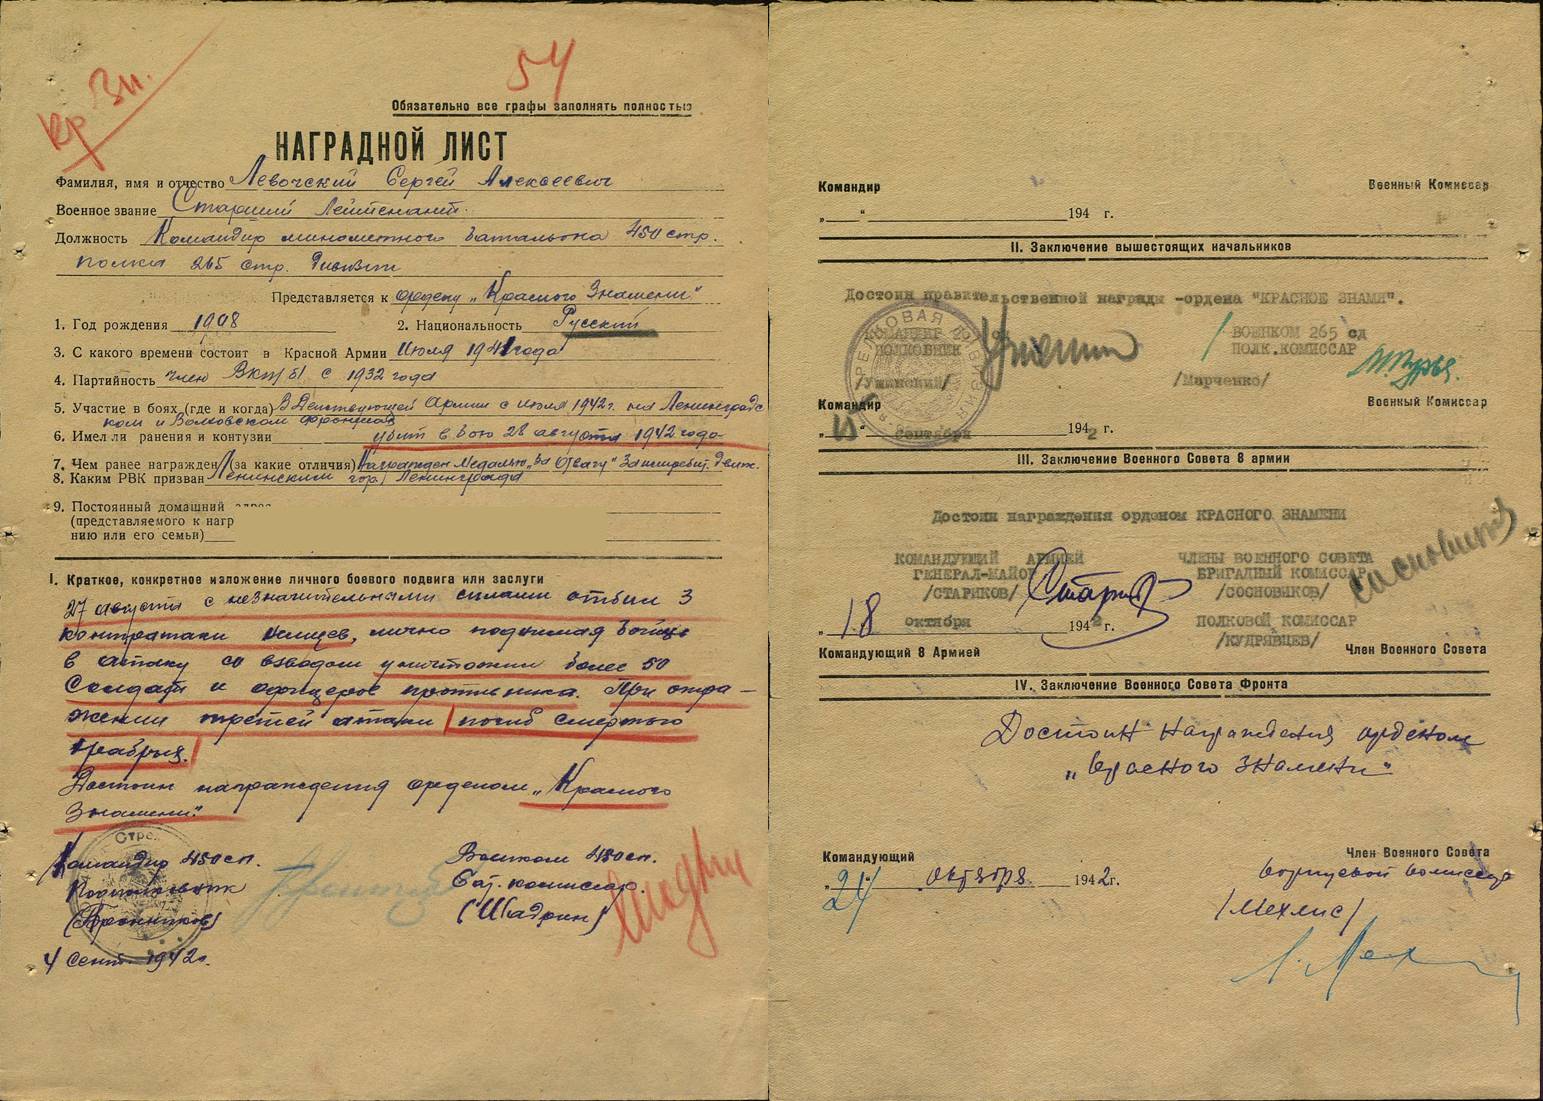 Кр Зн.
54
Обязательно все графы заполнять полностью
НАГРАДНОЙ ЛИСТ
Фамилия, имя и отчество Левочский Сергей Алексеевич
Военное звание Старший Лейтенант.
Должность Командир минометного батальона 450 стр.
полка 265 стр. дивизии
Представляется к ордену „Красного Знамени"
1. Год рождения 1908 2. Национальность Русский
3. С какого времени состоит в Красной Армии Июля 1941 года
4. Партийность член ВКП(б) с 1932 года
5. Участие в боях (где и когда) В Действующей Армии с июля 1942 г. на Ленинградс
ком и Волховском фронтах
6. Имел ли ранения и контузии убит в бою 28 августа 1942 года
7. Чем ранее награжден (за какие отличия) Награжден медалью „За Отвагу"
8. Каким РВК призван Ленинским гор. Ленинграда
9. Постоянный домашний
(представляемого к нагр
нию или его семьи)
I. Краткое, конкретное изложение личного боевого подвига или заслуги
27 августа с незначительными силами отбил 3
контратаки немцев, лично поднимая бойцов
в атаку со взводом уничтожил более 50
солдат и офицеров противника. При отра-
жении третей атаки погиб смертью
храбрых.
Достоин награждения орденом „Красного
Знамени".
Командир 450 сп. Военком 450 сп.
Подполковник Бат. комиссар.
(Шадрин)
4 сент. 1942 г.
Командир Военный Комиссар
„ “ 194 г.
II. Заключение вышестоящих начальников
Достоин правительственной награды -ордена "КРАСНОЕ ЗНАМЯ".
КОМАНДИР ВОЕНКОМ 265 сд
ПОЛКОВНИК ПОЛК.КОМИССАР
/Ушинский/ /Марченко/
Командир Военный Комиссар
„15“ сентября 1942 г.
III. Заключение Военного Совета 8 армии
Достоин награждения орденом КРАСНОГО ЗНАМЕНИ
КОМАНДУЮЩИЙ АРМИЕЙ ЧЛЕНЫ ВОЕННОГО СОВЕТА
ГЕНЕРАЛ-МАЙОР БРИГАДНЫЙ КОМИССАР
/СТАРИКОВ/ /СОСНОВИКОВ/
„18 октября 1942 г. ПОЛКОВОЙ КОМИССАР
/КУДРЯВЦЕВ/
Командующий 8 Армией Член Военного Совета
IV. Заключение Военного Совета Фронта
Достоин награждения орденом
„Красного Знамени"
Командующий Член Военного Совета
„24“ октября 1942 г. Корпусной комиссар
/Мехлис/